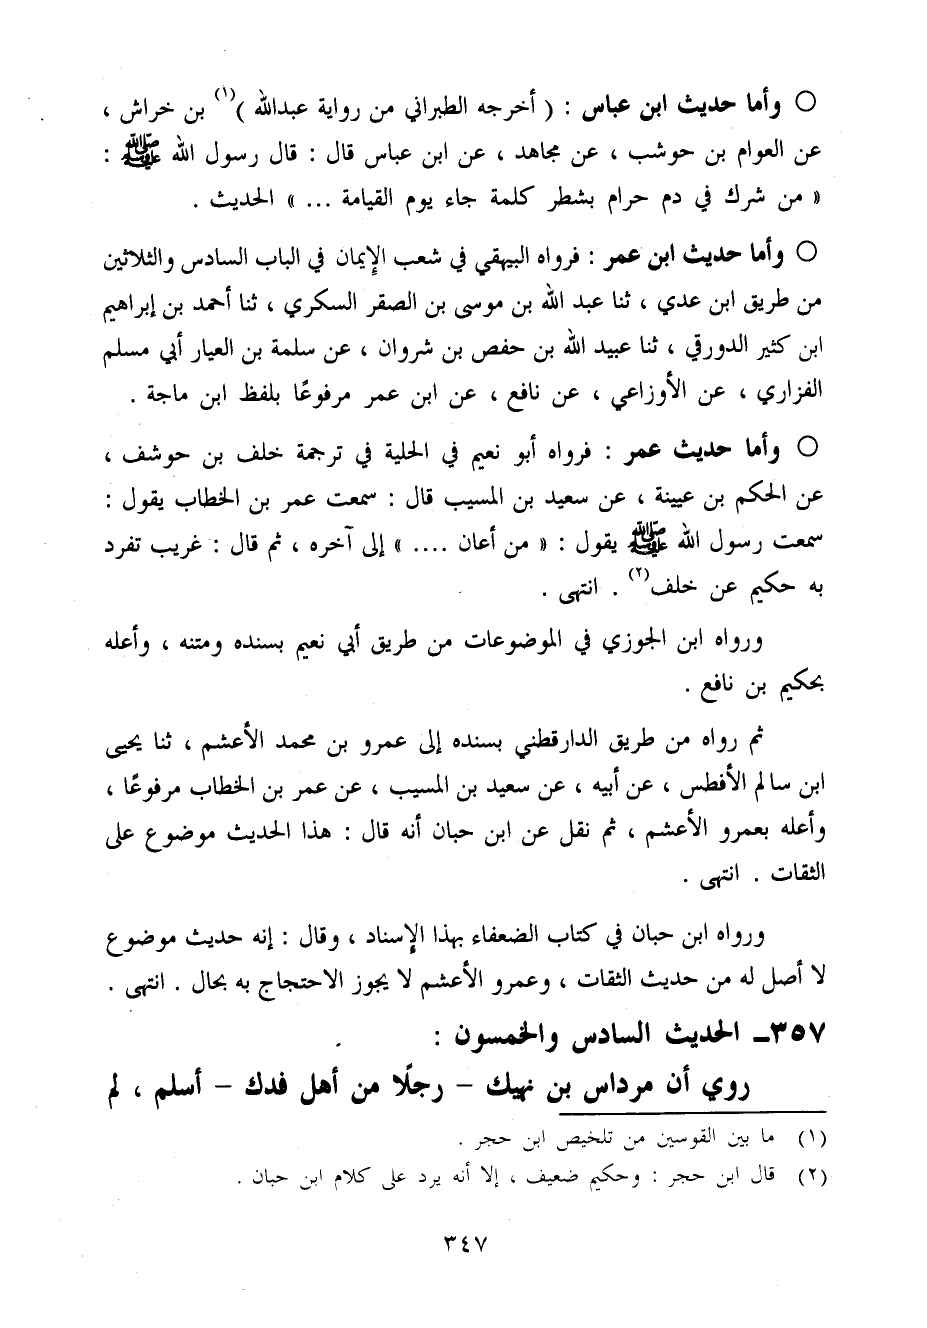 ○ وأما حديث ابن عباس : ( أخرجه الطبراني من رواية عبدالله )(١) بن خراش ،
عن العوام بن حوشب ، عن مجاهد ، عن ابن عباس قال : قال رسول الله ﷺ :
« من شرك في دم حرام بشطر كلمة جاء يوم القيامة ... » الحديث .
○ وأما حديث ابن عمر : فرواه البيهقي في شعب الإيمان في الباب السادس والثلاثين
من طريق ابن عدي ، ثنا عبد الله بن موسى بن الصقر السكري ، ثنا أحمد بن إبراهيم
ابن كثير الدورقي ، ثنا عبيد الله بن حفص بن شروان ، عن سلمة بن العيار أبي مسلم
الفزاري ، عن الأوزاعي ، عن نافع ، عن ابن عمر مرفوعًا بلفظ ابن ماجة .
○ وأما حديث عمر : فرواه أبو نعيم في الحلية في ترجمة خلف بن حوشف ،
عن الحكم بن عيينة ، عن سعيد بن المسيب قال : سمعت عمر بن الخطاب يقول :
سمعت رسول الله ﷺ يقول : « من أعان .... » إلى آخره ، ثم قال : غريب تفرد
به حكيم عن خلف(٢) . انتهى .
ورواه ابن الجوزي في الموضوعات من طريق أبي نعيم بسنده ومتنه ، وأعله
بحكيم بن نافع .
ثم رواه من طريق الدارقطني بسنده إلى عمرو بن محمد الأعشم ، ثنا يحيى
ابن سالم الأفطس ، عن أبيه ، عن سعيد بن المسيب ، عن عمر بن الخطاب مرفوعًا ،
وأعله بعمرو الأعشم ، ثم نقل عن ابن حبان أنه قال : هذا الحديث موضوع على
الثقات . انتهى .
ورواه ابن حبان في كتاب الضعفاء بهذا الإسناد ، وقال : إنه حديث موضوع
لا أصل له من حديث الثقات ، وعمرو الأعشم لا يجوز الاحتجاج به بحال . انتهى .
٣٥٧ـ الحديث السادس والخمسون :
روي أن مرداس بن نهيك – رجلًا من أهل فدك – أسلم ، لم
(١) ما بين القوسين من تلخيص ابن حجر .
(٢) قال ابن حجر : وحكيم ضعيف ، إلا أنه يرد على كلام ابن حبان .
٣٤٧